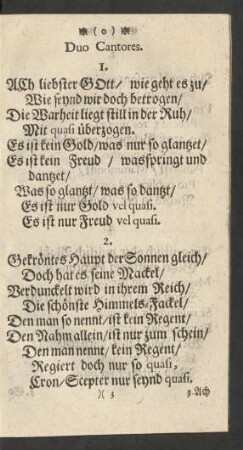 ❋ ( o ) ❋
Duo Cantores.
1.
ACh liebster GOtt/ wie geht es zu/
Wie seynd wir doch betrogen/
Die Warheit liegt still in der Ruh/
Mit quasi überzogen.
Es ist kein Gold/was nur so glantzet/
Es ist kein Freud / was springt und
dantzet/
Was so glantzt/ was so dantzt/
Es ist nur Gold vel quasi.
Es ist nur Freud vel quasi.
2.
Gekröntes Haupt der Sonnen gleich/
Doch hat es seine Mackel/
Verdunckelt wird in ihrem Reich/
Die schönste Himmels-Fackel/
Den man so nennt/ ist kein Regent/
Den Nahm allein/ist nur zum schein/
Den man nennt/ kein Regent/
Regiert doch nur so quasi,
Cron/Scepter nur seynd quasi.
)( 3 3. Ach